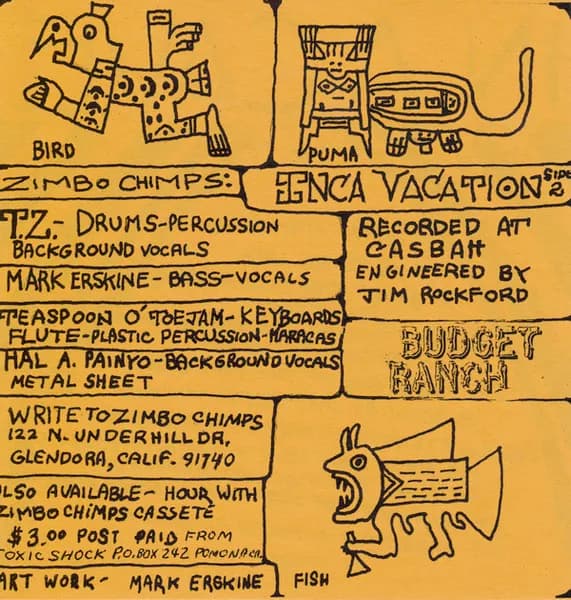 BIRD
PUMA
ZIMBO CHIMPS:
INCA VACATION SIDE 2
T.Z.- DRUMS-PERCUSSION
BACKGROUND VOCALS
MARK ERSKINE- BASS-VOCALS
TEASPOON O'TOEJAM- KEYBOARDS
FLUTE-PLASTIC PERCUSSION-MARACAS
HAL A. PAINYO-BACKGROUND VOCALS
METAL SHEET
RECORDED AT
CASBAH
ENGINEERED BY
JIM ROCKFORD
BUDGET
RANCH
WRITE TO ZIMBO CHIMPS
122 N. UNDERHILL DR.
GLENDORA, CALIF. 91740
ALSO AVAILABLE- HOUR WITH
ZIMBO CHIMPS CASSETE
$3.00 POST PAID FROM
TOXIC SHOCK P.O. BOX 242 POMONA CA.
ART WORK- MARK ERSKINE
FISH